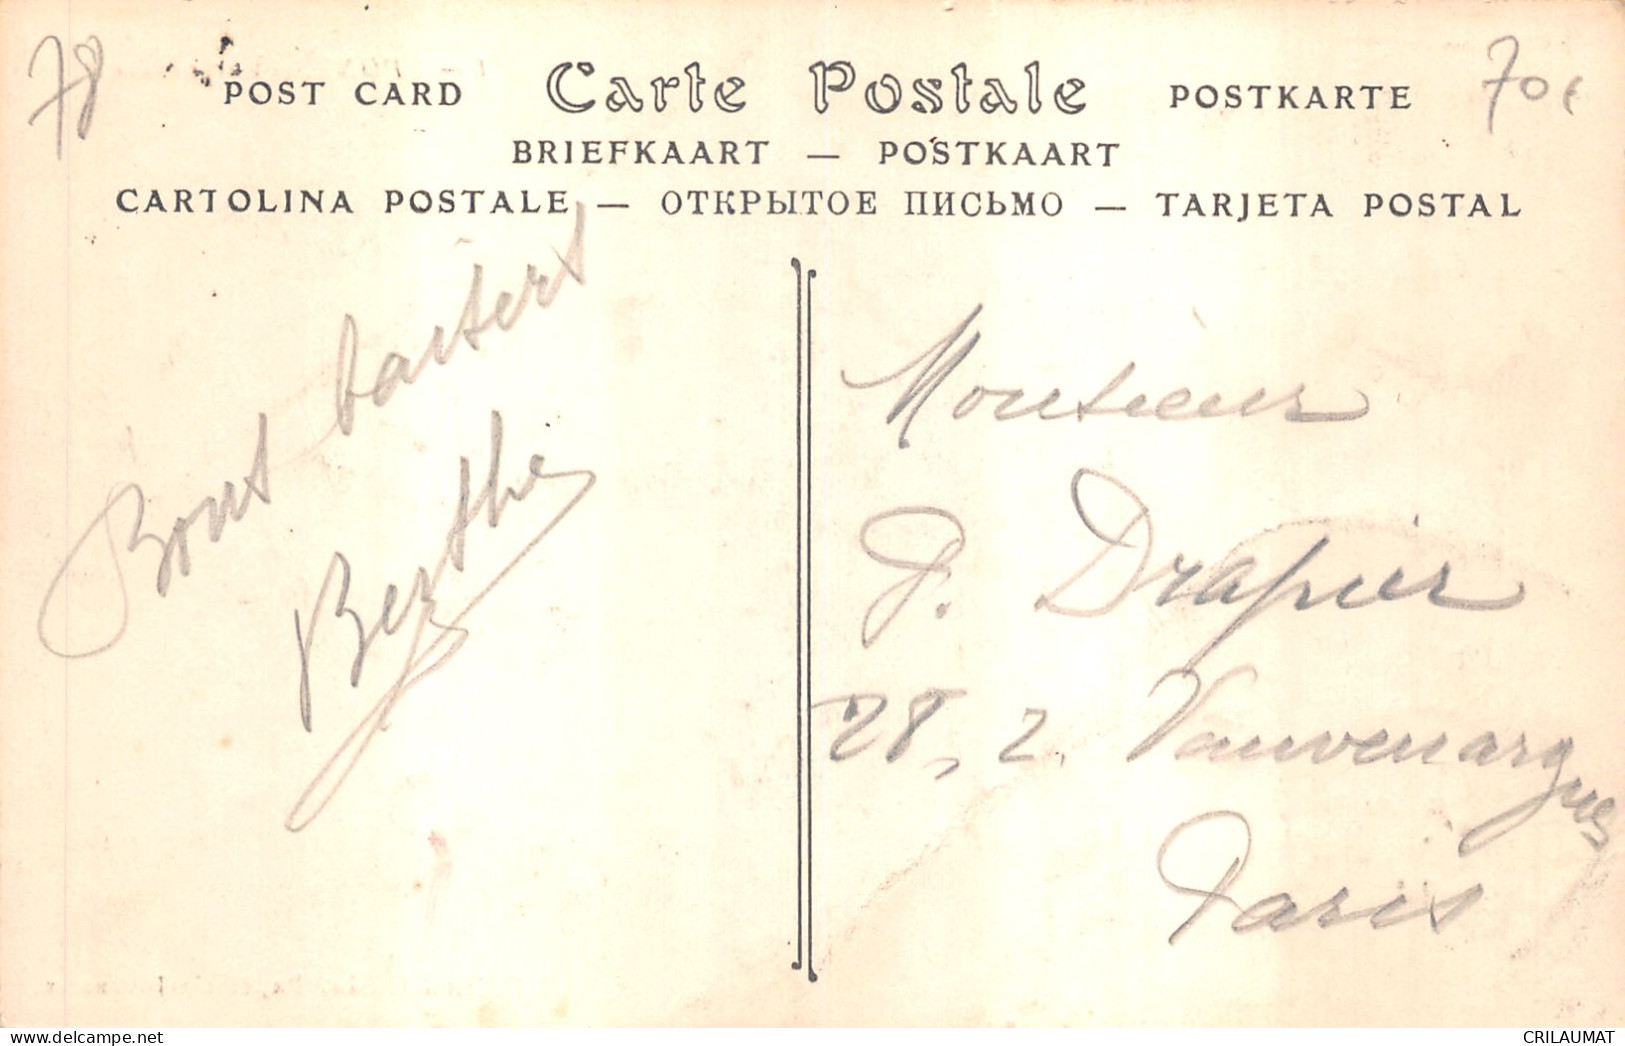 78
70€
POST CARD Carte Postale POSTKARTE
BRIEFKAART — POSTKAART
CARTOLINA POSTALE — ОТКРЫТОЕ ПИСЬМО — TARJETA POSTAL
Bons baisers
Berthe
Monsieur
P. Drapier
28, r. Vauvenargues
Paris
delcampe.net
CRILAUMAT